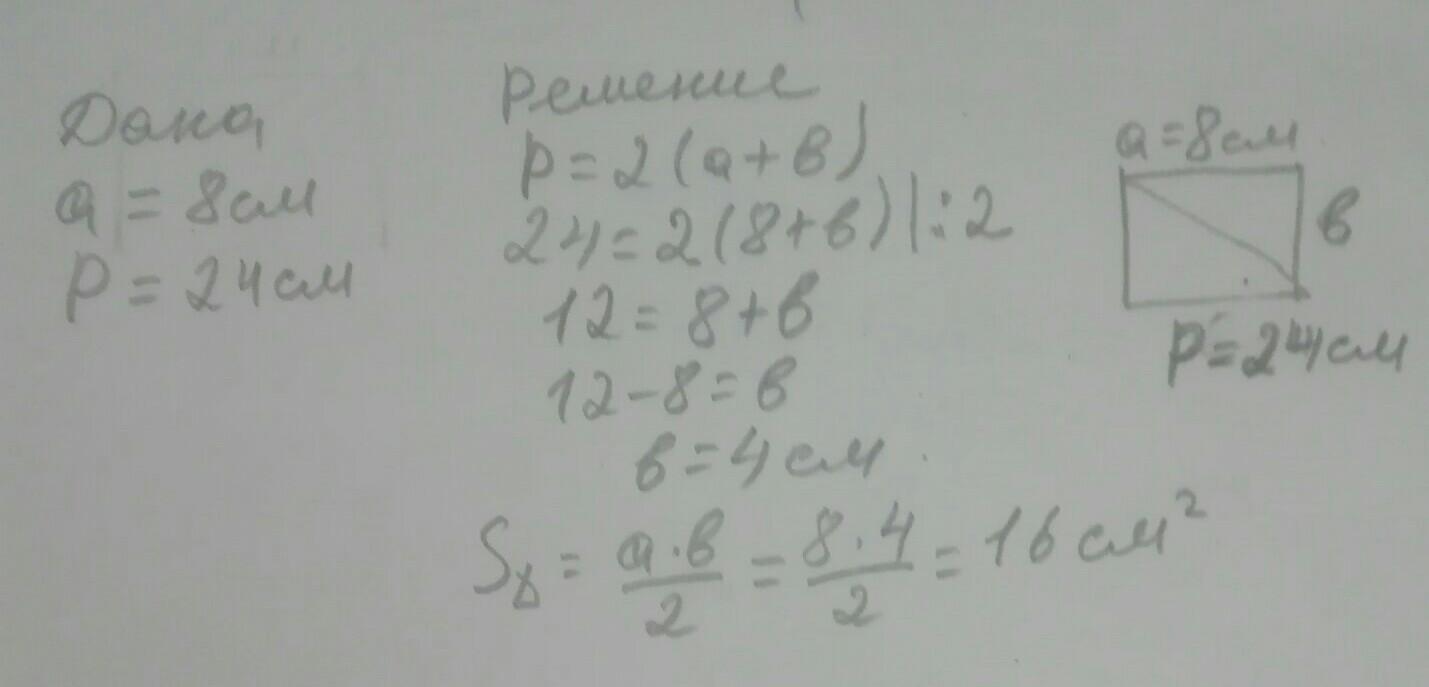 Дана
a = 8см
P = 24см
Решение
P = 2(a + в)
24 = 2(8 + в) |: 2
12 = 8 + в
12 - 8 = в
в = 4 см
S△ = a · в / 2 = 8 · 4 / 2 = 16 см²
a = 8см
в
P = 24см